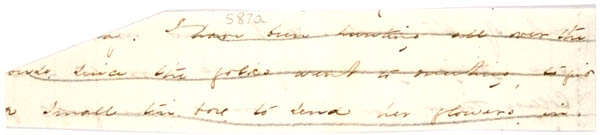 587a
a. I have been hunting all over the
ouse, since the folks went to meeting, to find
a small tin box, to send her flowers in.